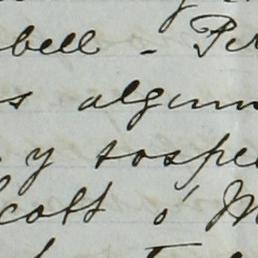 bell - Pe
s algun
y sospe
cott ó M